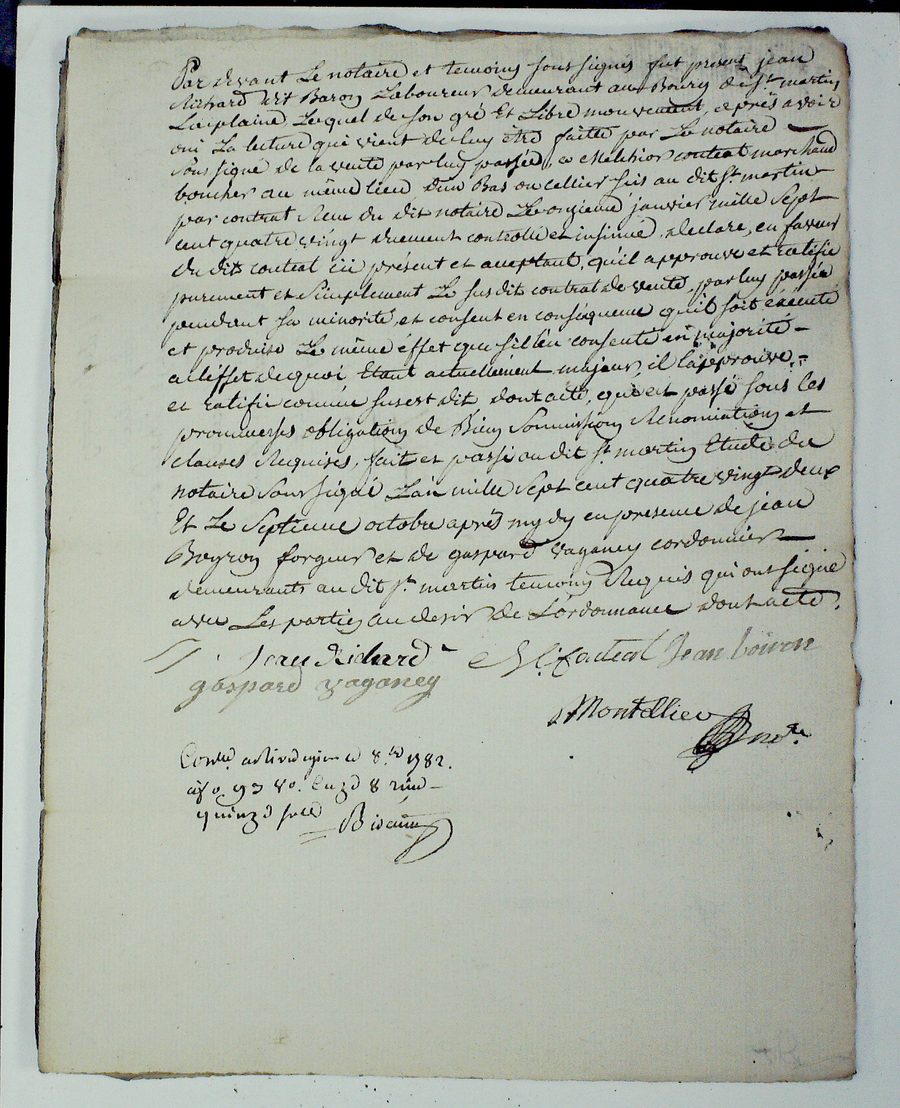 Par devant Le notaire et temoins sous signés fut present jean
Richard dit Baron Laboureur demeurant au Bourg de St. martin
La plaine Lequel de son gré Et Libre mouvement, après avoir
oui La lecture qui vient de luy être faitte par Le notaire
sous signé de la vente par luy passée, a Melchior couteat marchand
boucher au même lieu d'un Bas ou cellier sis au dit St. martin
par contrat Reçu du dit notaire Le onzieme janvier mille Sept
cent quatre vingt duement controllé et insinué, declare, en faveur
du dit couteat ici présent et acceptant, qu'il approuve et ratifie
purement et Simplement Le susdit contrat de vente, par luy passée
pendant sa minorité, et consent en conséquence qu'il soit exécuté
et produise Le même effet que s'il l'eu consenté en majorité
a l'effet de quoi Etant actuellement majeur, il l'approuve
et ratifie comme sus est dit dont acte, qui est passé sous les
promesses obligations de Bien Soumissions Renonciations et
clauses Requises, fait et passé au dit St. martin Etude du
notaire Sous signé L'an mille Sept cent quatre vingt deux
Et Le Septieme octobre après mydy en presence de jean
Boyron forgeur et de gaspard vaganey cordonnier
demeurants au dit St. martin temoins Requis qui ont signé
avec Les parties au desir de L'ordonnance dont acte.
Jean Richard M. Couteat Jean boiron
gaspard vaganey
Montellier nore.
Conllé. a rivedegier ce 8 bre 1782.
fo. 93 vo. Cazd 8 Reçu
quinze sols